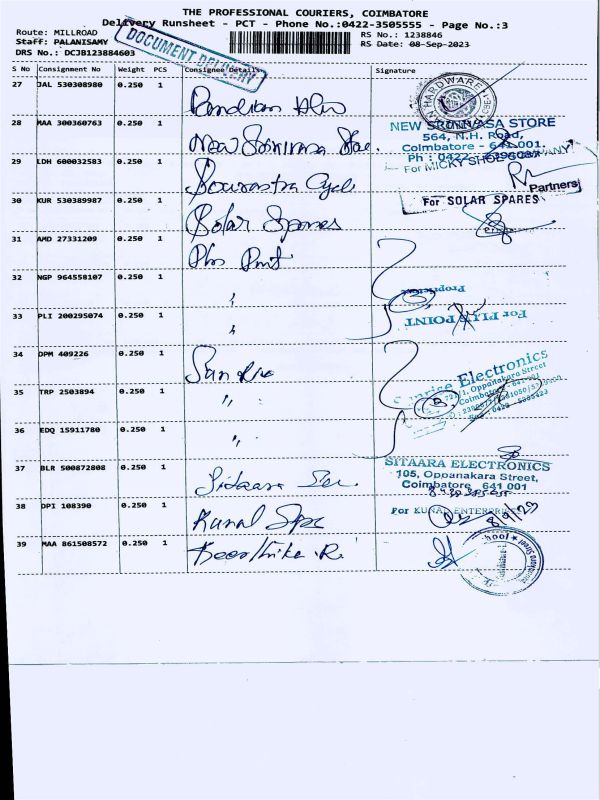 THE PROFESSIONAL COURIERS, COIMBATORE
Delivery Runsheet - PCT - Phone No.:0422-3505555 - Page No.:3
Route: MILLROAD
RS No.: 1238846
Staff: PALANISAMY
RS Date: 08-Sep-2023
DRS No.: DCJB123884603
DOCUMENT DELIVERY
S No Consignment No Weight PCS Consignee Details Signature
27 JAL 530308980 0.250 1
HARDWARE
28 MAA 300360763 0.250 1 New Srinivasa Store.
NEW SRINIVASA STORE
564, N.H. Road,
Coimbatore - 641 001.
29 LDH 600032583 0.250 1 Sourastra Cycle
For MICKY SHOE COMPANY
Partners
30 KUR 530389987 0.250 1 Solar Spares
For SOLAR SPARES
31 AMD 27331209 0.250 1
32 NGP 964558107 0.250 1 "
Proprietor
33 PLI 200295074 0.250 1 "
34 DPM 409226 0.250 1
Sunrise Electronics
721/1, Oppanakara Street
35 TRP 2503894 0.250 1 "
36 EDQ 15911780 0.250 1 "
37 BLR 500872808 0.250 1
SITAARA ELECTRONICS
105, Oppanakara Street,
Coimbatore - 641 001
38 DPI 108390 0.250 1 Kunal
For KUNAL ENTERPRISES
8/9/23
39 MAA 861508572 0.250 1 Keerthika R.